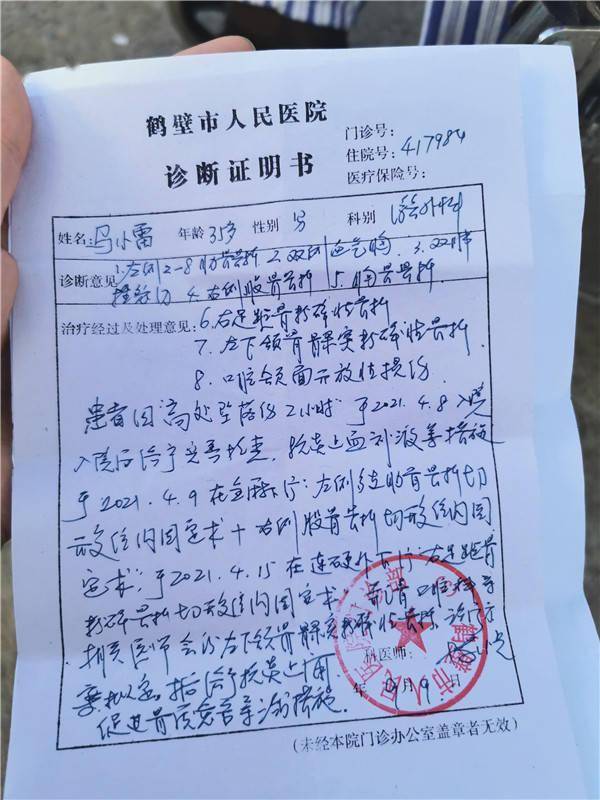 鹤壁市人民医院
诊断证明书
门诊号:
住院号: 417984
医疗保险号:
姓名: 冯小雷 年龄 35岁 性别 男 科别 外科
诊断意见 1.左侧2-8肋骨骨折 2.双侧血气胸 3.双肺
挫裂伤 4.右侧股骨骨折 5.胸骨骨折
治疗经过及处理意见: 6.右足距骨粉碎性骨折
7.左下颌骨髁突粉碎性骨折
8.口腔颌面开放性损伤
患者因"高处坠落伤2小时"于2021.4.8入院
入院后给予完善检查,抗炎止血补液等措施
于2021.4.9在全麻下行:左侧多发肋骨骨折切
开复位内固定术+右侧股骨骨折切开复位内固
定术;于2021.4.15在连硬外下行右足距骨
粉碎骨折切开复位内固定术
医师会诊左下颌骨髁突粉碎性骨折
给予抗炎止痛
促进骨质愈合等治疗措施.
科医师:
年 9月9日
鹤壁市人民医院
(未经本院门诊办公室盖章者无效)